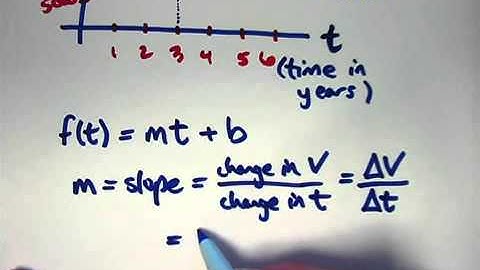 1 2 3 4 5 6 t
(time in
years)
f(t) = mt + b
m = slope = change in V / change in t = ΔV / Δt
=